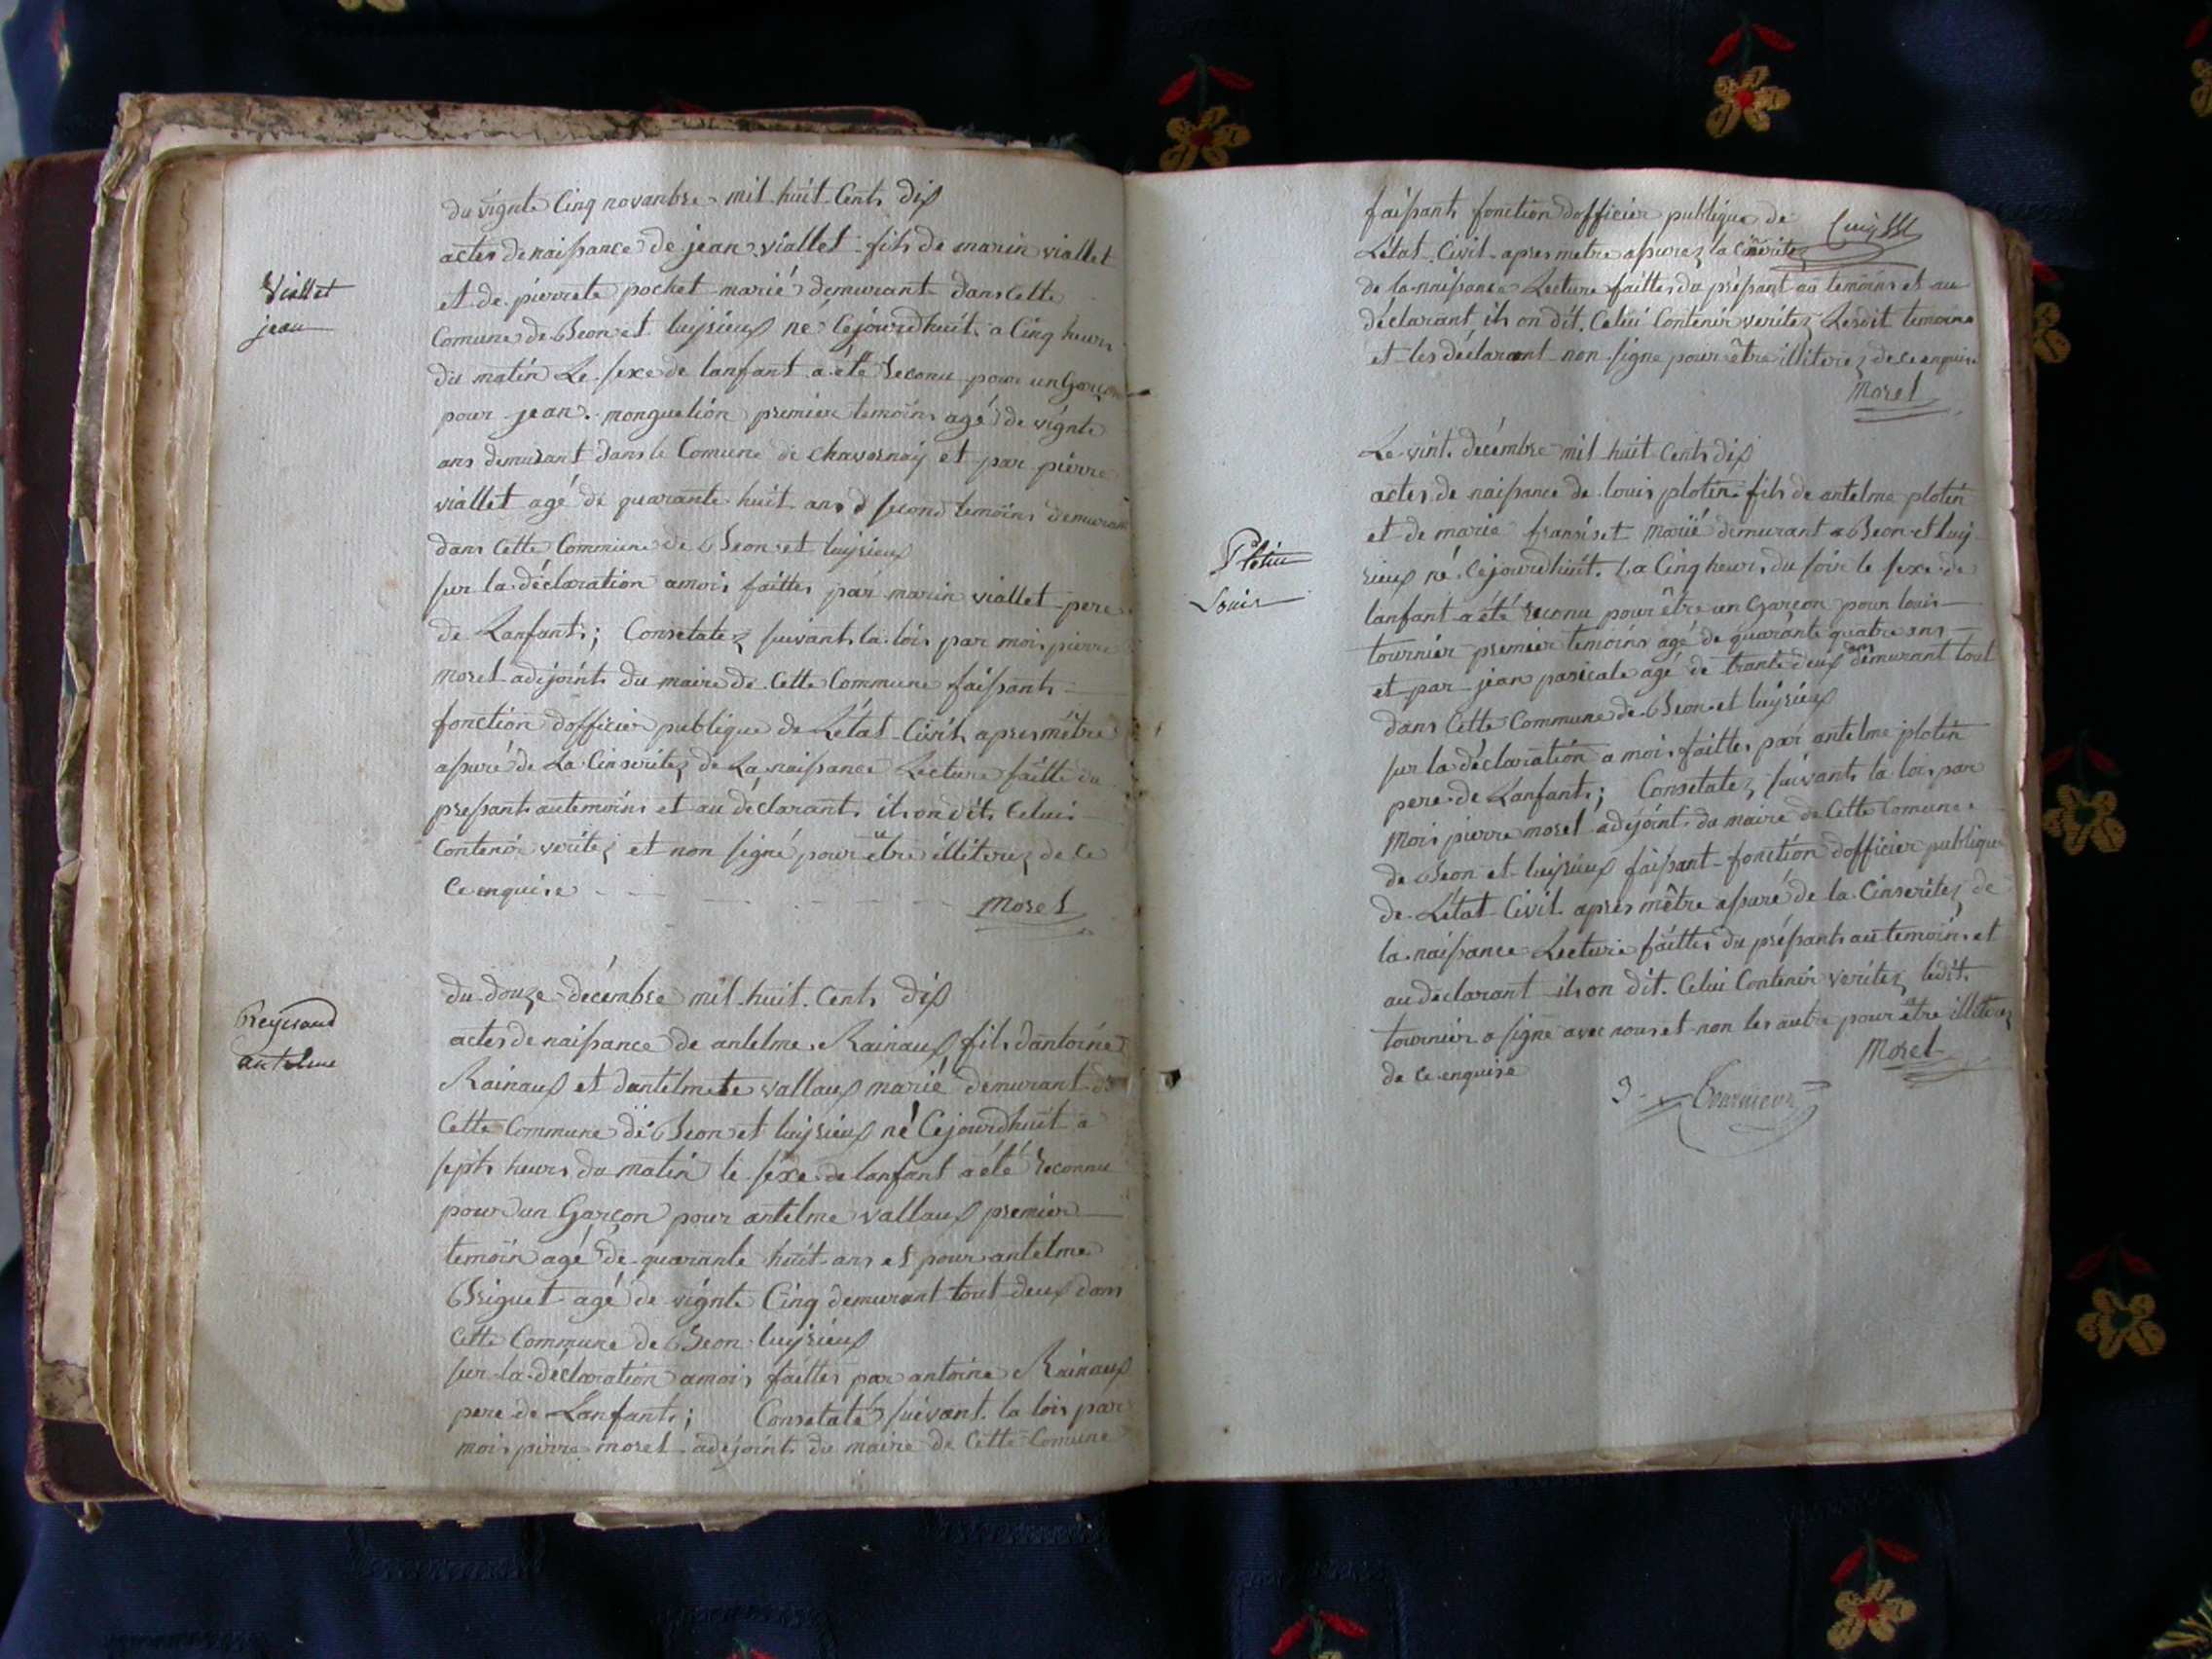 du vignte Cinq novanbre mil huit Cents dix
Viallet
jean
actes de naissance de jean viallet fils de marin viallet
et de pierrete pochet marié demurante dans cette
Comune de Beon et luijrieux né Cejourdhuit a Cinq heurs
du matin Le sexe de lanfant a été reconu pour un Garçon
pour jean monguelion premier temoins agé de vignte
ans demurant dans le Comune de chavornay et par pierre
viallet agé de quarante huit ans second temoins demurant
dans Cette Commune de Beon et luijrieux
sur la déclaration amois faittes par marin viallet pere
de Lanfants; Consetatez suivants la lois par mois pierre
morel adejoints du maire de Cette Commune faissants
fonction dofficier publique de Létat Civils apres mêtre
assuré de La Cinseritez de La naissance Lecture faitte du
pressants autemoins et au déclarants ils on dits Celui
Contenir veritez et non signé pour être illiterez de Ce
Ce enquire
Morel
Reynaud
antelme
du douze décembre mil huit Cents dix
actes de naissance de antelme Rainaux fils dantoine
Rainaux et dantelmete vallaux marié demurant de
Cette Commune de Beon et luijrieux né Cejourdhuit a
septs heurs du matin le sexe de lanfant a été reconnu
pour un Garçon pour antelme vallaux premier
temoin agé de quarante huit ans et pour antelme
Briguet agé de vignte Cinq demurant tout deux dans
Cette Commune de Beon luijrieux
sur la déclaration amois faittes par antoine Rainaux
pere de Lanfants; Consetatés suivant la lois par
mois pierre morel adejoints du maire de Cette Comune
faissants fonction dofficier publique de
Létat Civil apres metre assurez la
de la naissance Lecture faittes du préssant au temoins et au
déclarant ils on dit Celui Contenir veritez Lesdit temoins
et les déclarant non signe pour être illiterez de ce enquire
Morel
Le vint décembre mil huit Cents dix
Plotin
Louis
actes de naissance de louis plotin fils de antelme plotin
et de marie fransiset marié demurant a Beon et luij
rieux né Cejourdhuit a Cinq heurs du soir le sexe de
lanfant a été reconu pour être un Garçon pour louis
tournier premier temoins agé de quarante quatre ans
et par jean pasicale agé de trante deux ans demurant tout
dans Cette Commune de Beon et luijrieux
sur la déclaration a mois faittes par antelme plotin
pere de Lanfants; Consetatez suivants la lois par
Mois pierre morel adejoint du maire de Cette Comune
de Beon et luijrieux faissant fonction dofficier publique
de Létat Civil apres mêtre assuré de la Cinseritez de
la naissance Lecture faittes du préssants au temoins et
au déclarant ils on dit Celui Contenir veritez ledit
tournier a signe avec nous et non les autre pour être illiterez
de Ce enquire
Morel
Tournieur